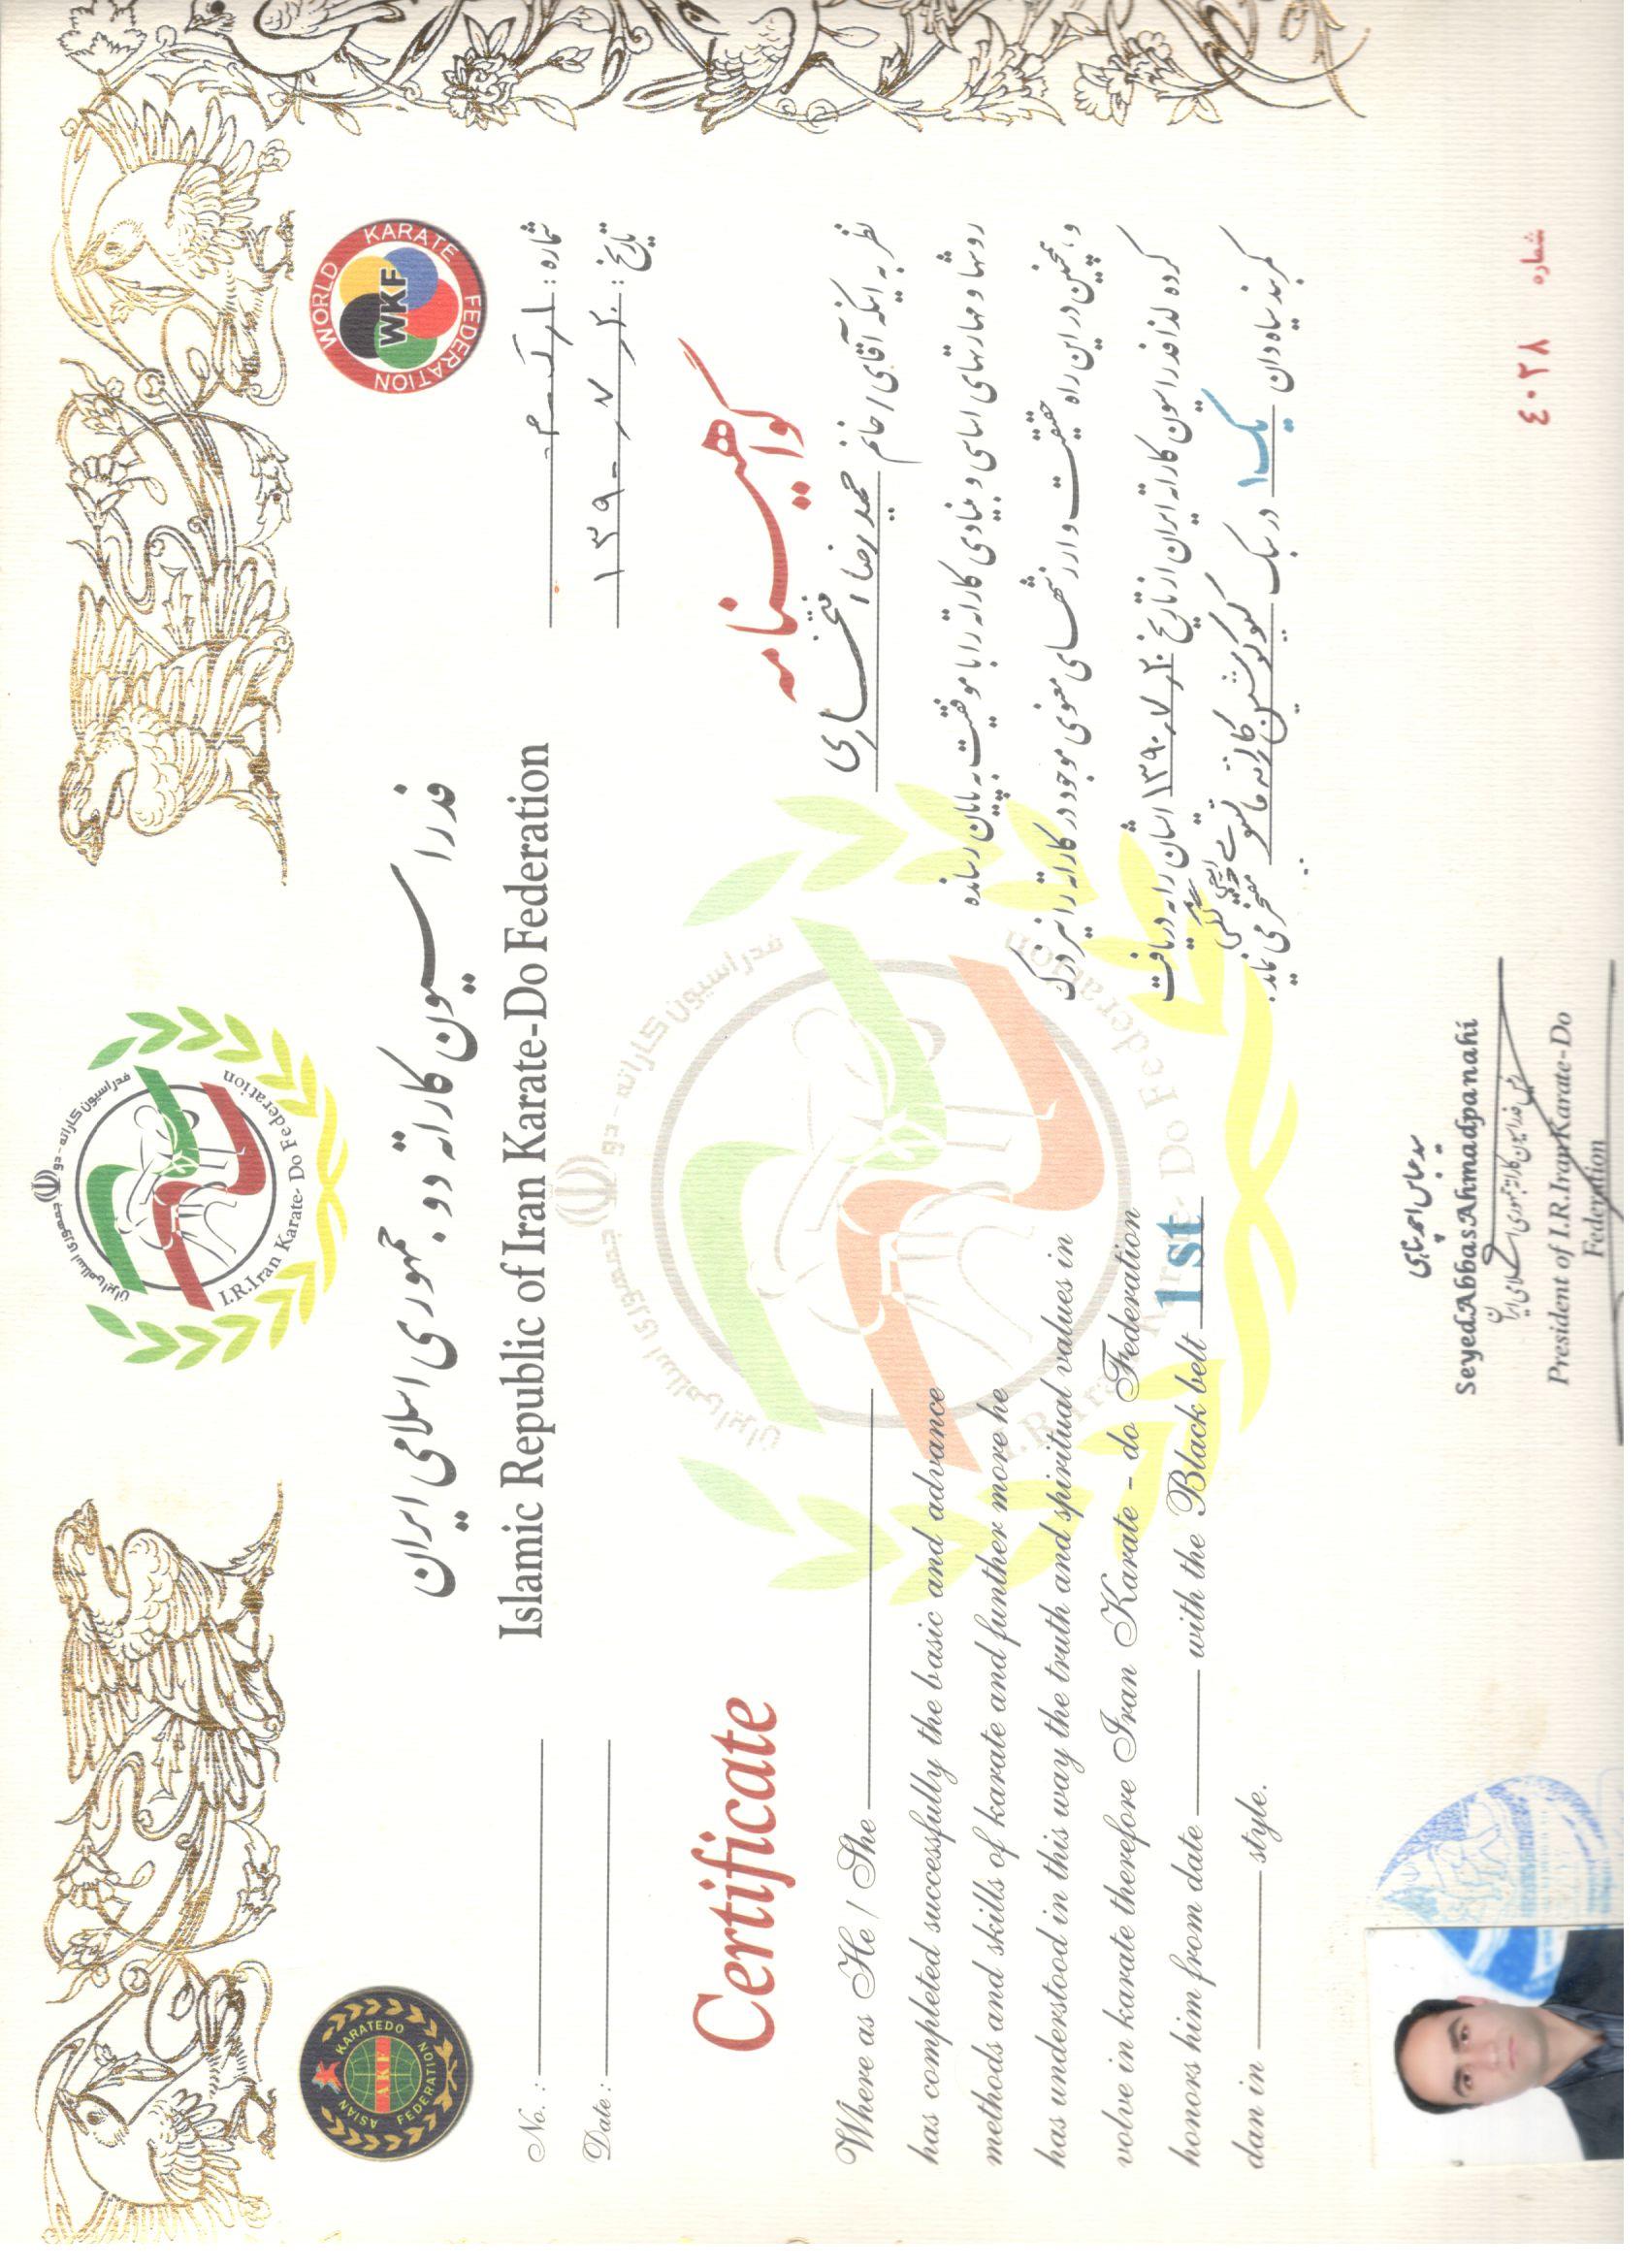 فدراسیون کاراته دو جمهوری اسلامی ایران
I.R.Iran Karate- Do Federation
ASIAN KARATEDO FEDERATION
AKF
WORLD KARATE FEDERATION
WKF
فدراسیون کاراته دو. جمهوری اسلامی ایران
Islamic Republic of Iran Karate-Do Federation
No. :
Date :
شماره :
تاریخ : ۱۳۹۰٫۷٫۲۰
Certificate
Where as He / She
has completed successfully the basic and advance
methods and skills of karate and funther more he
has understood in this way the truth and spiritual values in
volve in karate therefore Iran Karate - do Federation
honors him from date with the Black belt 1st
dan in style.
گواهینامه
نظر به اینکه آقای / خانم حمیدرضا افتخاری
روشها و مهارتهای اساسی و بنیادی کاراته را با موفقیت به پایان رسانده
و همچنین در این راه حقیقت و ارزشهای معنوی موجود در کاراته را نیز درک
کرده لذا فدراسیون کاراته ایران از تاریخ ۱۳۹۰٫۷٫۲۰ ایشان را به دریافت
کمربند سیاه دان یک ۱ در سبک کیوکوشین کاراته مفتخر می نماید.
سید عباس احمدپناهی
SeyedAbbasAhmadpanahi
رئیس فدراسیون کاراته جمهوری اسلامی ایران
President of I.R.Iran Karate-Do
Federation
شماره ٤٠٢٨